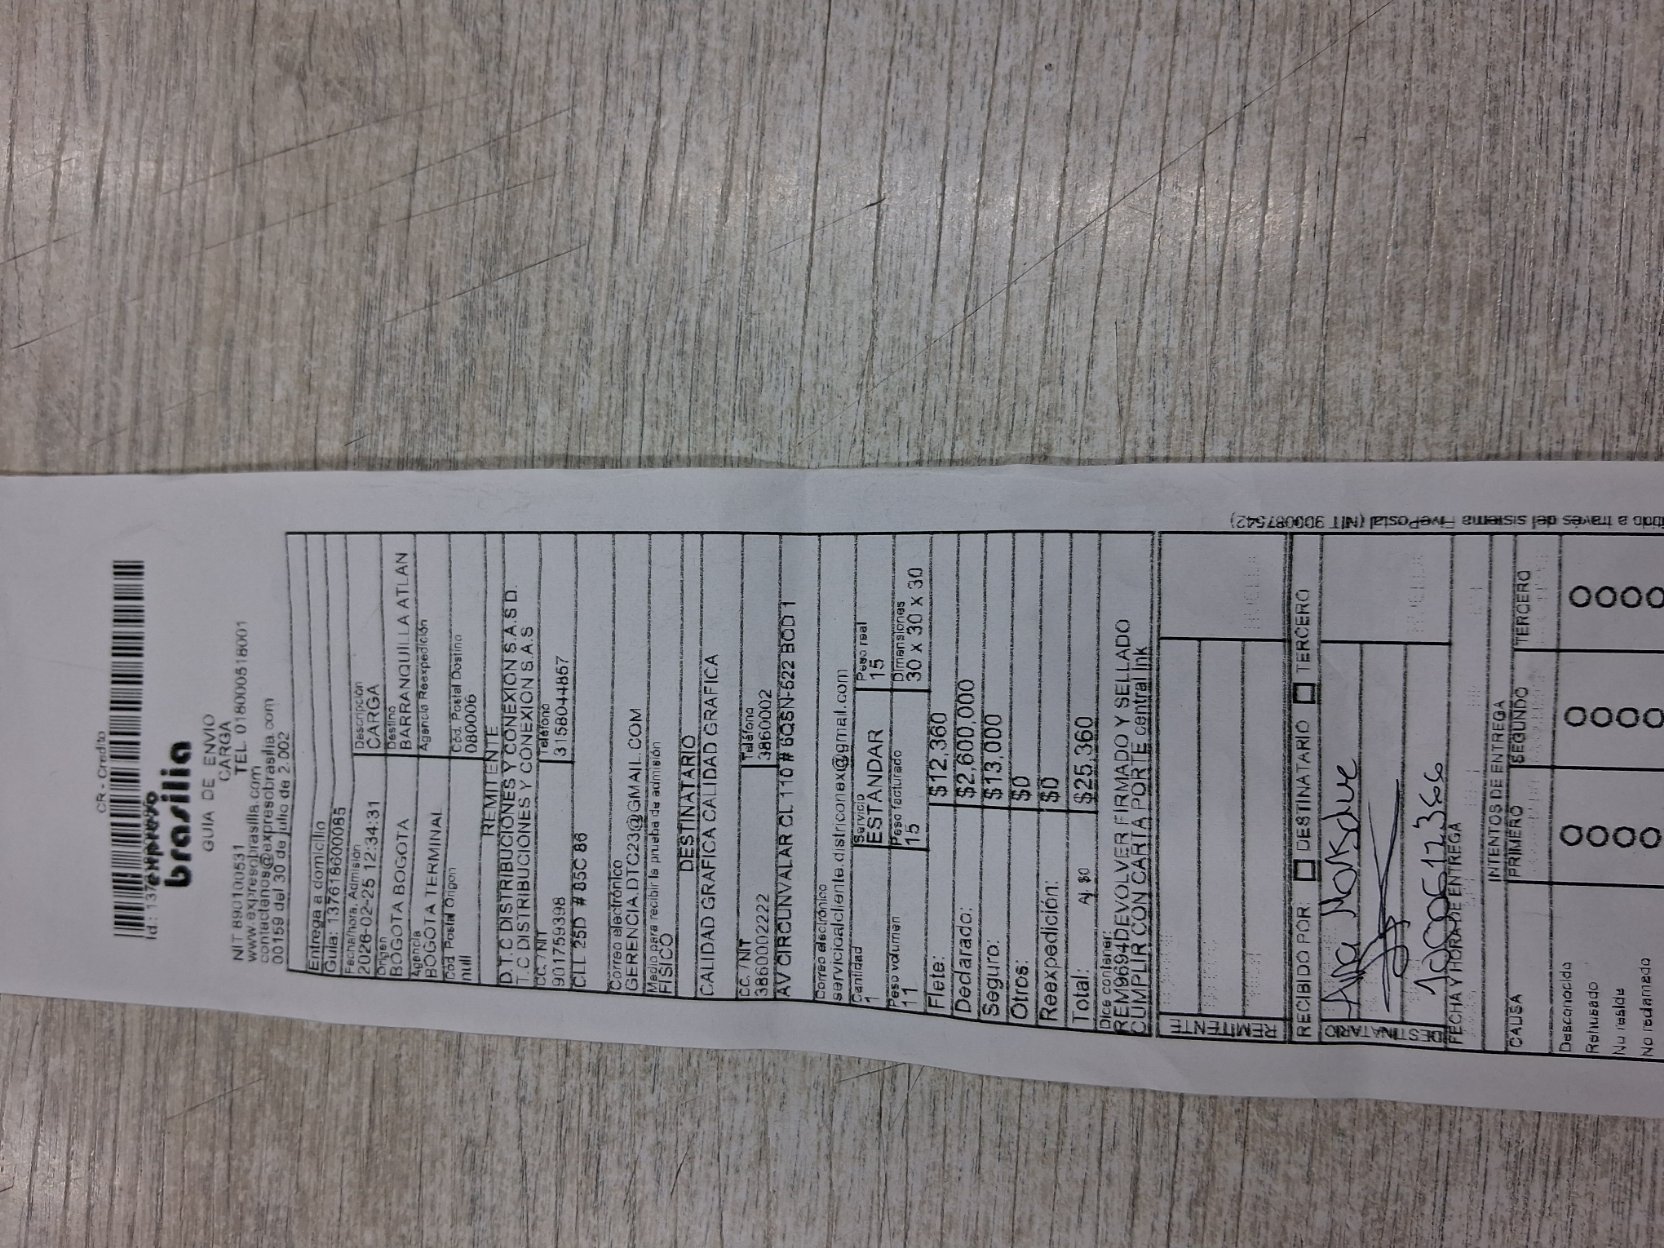 CR - Credito
Id.: 1376
expreso
brasilia
GUIA DE ENVIO
CARGA
NIT 890100531 TEL. 018000518001
www.expresobrasilia.com
contactenos@expresobrasilia.com
00159 del 30 de julio de 2.002
Entrega a domicilio
Guia: 137618600085
Fecha/hora. Admisión
2026-02-25 12:34:31
Descripción
CARGA
Origen
BOGOTA BOGOTA
Destino
BARRANQUILLA ATLAN
Agencia
BOGOTA TERMINAL
Agencia Reexpedición
Cód. Postal Origen
null
Cód. Postal Destino
080006
REMITENTE
D.T.C DISTRIBUCIONES Y CONEXION S.A.S D.
T.C DISTRIBUCIONES Y CONEXION S.A.S
CC. / NIT
901759398
Teléfono
3158044857
CLL 25D # 85C 86
Correo electrónico
GERENCIA.DTC23@GMAIL.COM
Medio para recibir la prueba de admisión
FISICO
DESTINATARIO
CALIDAD GRAFICA CALIDAD GRAFICA
CC. / NIT
3860002222
Teléfono
3860002
AV CIRCUNVALAR CL 110 # 6QSN-522 BOD 1
Correo electrónico
servicioalcliente.districonex@gmail.com
Cantidad
1
Servicio
ESTANDAR
Peso real
15
Peso volumen
11
Peso facturado
15
Dimensiones
30 x 30 x 30
Flete: $12,360
Declarado: $2,600,000
Seguro: $13,000
Otros: $0
Reexpedición: $0
Total: Aj. $0 $25,360
Dice contener:
REM9694DEVOLVER FIRMADO Y SELLADO
CUMPLIR CON CARTA PORTE central Ink
REMITENTE
RECIBIDO POR: DESTINATARIO TERCERO
DESTINATARIO
FECHA Y HORA DE ENTREGA
INTENTOS DE ENTREGA
CAUSA PRIMERO SEGUNDO TERCERO
Desconocido
Rehusado
No reside
No reclamado
a través del sistema FivePostal (NIT 900087542)